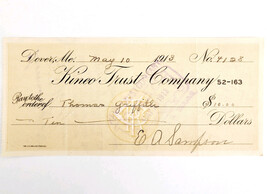 Dover, Me. May 10 1913 No. 4128
Kineo Trust Company 52-163
Pay to the order of Thomas Griffith $10.00
Ten Dollars
E A Sampson